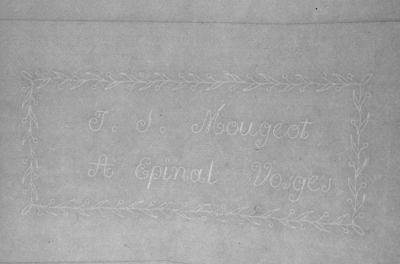 J. J. Mougeot
A Epinal Vosges